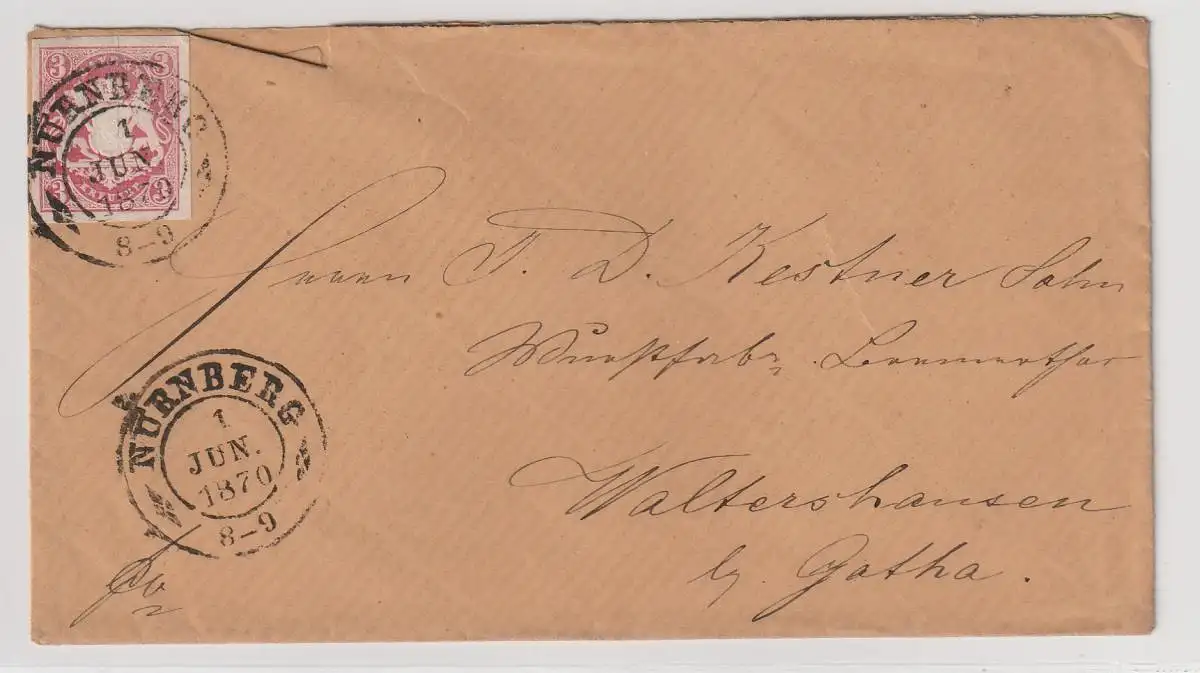 3 3
NÜRNBERG
1
JUN
1870
8-9
3 3
Herrn J. D. Kestner Sohn
Waltershausen
b. Gotha.
NÜRNBERG
1
JUN.
1870
8-9